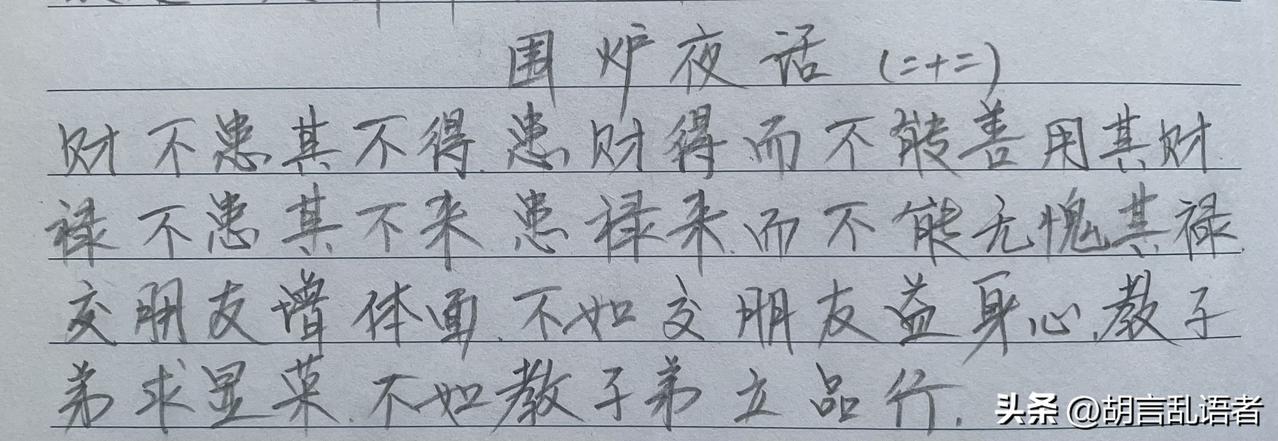 围炉夜话(二十二)
财不患其不得.患财得而不能善用其财.
禄不患其不来患禄来而不能无愧其禄.
交朋友增体面.不如交朋友益身心.教子
弟求显荣.不如教子弟立品行.
头条 @胡言乱语者